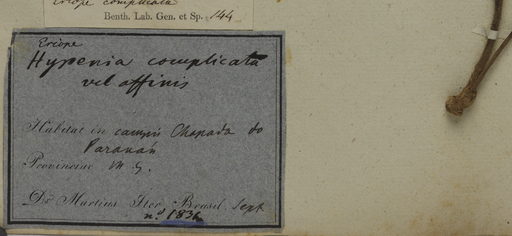 Eriope complicata
Benth. Lab. Gen. et Sp. 144
Eriope
Hypenia complicata
vel affinis
Habitat in campis Chapada do
Paranán
Provinciae M. G.
Dr. Martius Iter Brasil. Sept
n.